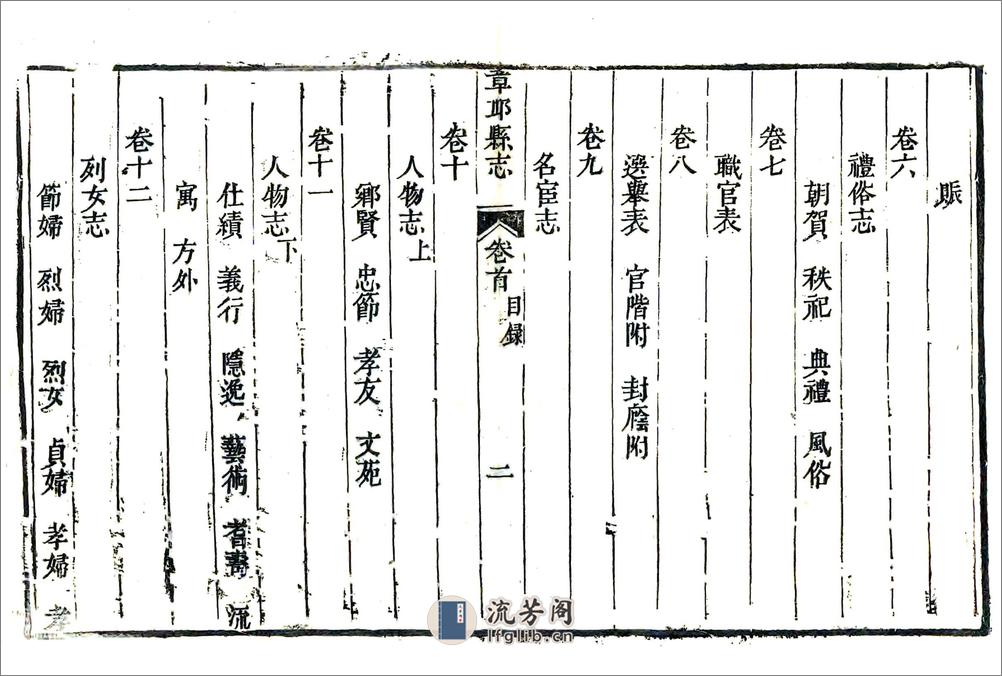 賑
卷六
禮俗志
朝賀 秩祀 典禮 風俗
卷七
職官表
卷八
選舉表 官階附 封廕附
卷九
名宦志
章邱縣志 卷首 目録 二
卷十
人物志上
鄉賢 忠節 孝友 文苑
卷十一
人物志下
仕績 義行 隱逸 藝術 耆壽 流
寓 方外
卷十二
列女志
節婦 烈婦 烈女 貞婦 孝婦 孝
流芳阁
lfglib.cn